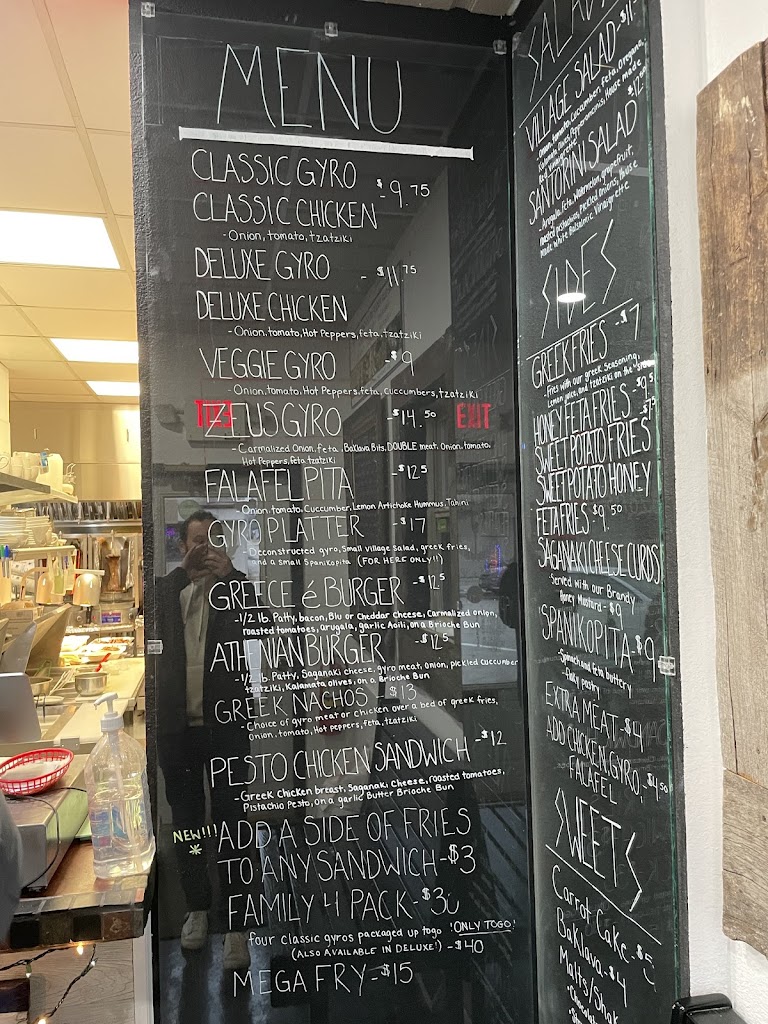 MENU
CLASSIC GYRO
-$9.75
CLASSIC CHICKEN
-Onion, tomato, tzatziki
DELUXE GYRO -$11.75
DELUXE CHICKEN
-Onion, tomato, Hot Peppers, feta, tzatziki
VEGGIE GYRO -$9
-Onion, tomato, Hot Peppers, feta, Cuccumbers, tzatziki
ZEUS GYRO -$14.50
EXIT
-Carmalized Onion, feta, Baklava Bits, DOUBLE meat, Onion, tomato,
Hot Peppers, feta, tzatziki
FALAFEL PITA -$12.5
-Onion, tomato, Cuccumber, Lemon Artichoke Hummus, Tahini
GYRO PLATTER -$17
-Deconstructed gyro, Small Village Salad, greek fries,
and a small Spanikopita (FOR HERE ONLY!!)
GREECE é BURGER -$12.5
-1/2 lb. Patty, bacon, Blu or Cheddar Cheese, Carmalized onion,
roasted tomatoes, arugala, garlic Aoili, on a Brioche Bun
ATHENIAN BURGER -$12.5
-1/2 lb. Patty, Saganaki cheese, gyro meat, onion, pickled cuccumber
tzatziki, Kalamata olives, on a Brioche Bun
GREEK NACHOS -$13
-Choice of gyro meat or chicken over a bed of greek fries,
Onion, tomato, Hot peppers, feta, tzatziki
PESTO CHICKEN SANDWICH -$12
-Greek Chicken breast, Saganaki Cheese, roasted tomatoes,
Pistachio Pesto, on a garlic Butter Brioche Bun
NEW!!! ADD A SIDE OF FRIES
TO ANY SANDWICH -$3
FAMILY 4 PACK -$36
four classic gyros packaged up togo !ONLY TOGO!
(ALSO AVAILABLE IN DELUXE!) -$40
MEGA FRY -$15
SALADS
VILLAGE SALAD -$11
-Onion, tomato, Cuccumber, Feta, Oregano,
Kalamata Olives, Pepperoncinis, House made
SANTORINI SALAD
-Arugala, feta, Watermelon, grapefruit,
roasted pistachios, pickled onions, House
made White Balsamic Vinaigrette
SIDES
GREEK FRIES -$7
-Fries with our greek seasoning,
Lemon juice, and tzatziki on the side
HONEY FETA FRIES -$9.5
SWEET POTATO FRIES
SWEET POTATO HONEY
FETA FRIES $9.50
SAGANAKI CHEESE CURDS
-Served with our Brandy
Honey Mustard -$9
SPANIKOPITA -$9
-Spinach and feta buttery
flaky pastry
EXTRA MEAT -$4
ADD CHICKEN, GYRO,
FALAFEL $4.50
SWEETS
Carrot Cake -$5
Baklava -$4
Malts/Shak